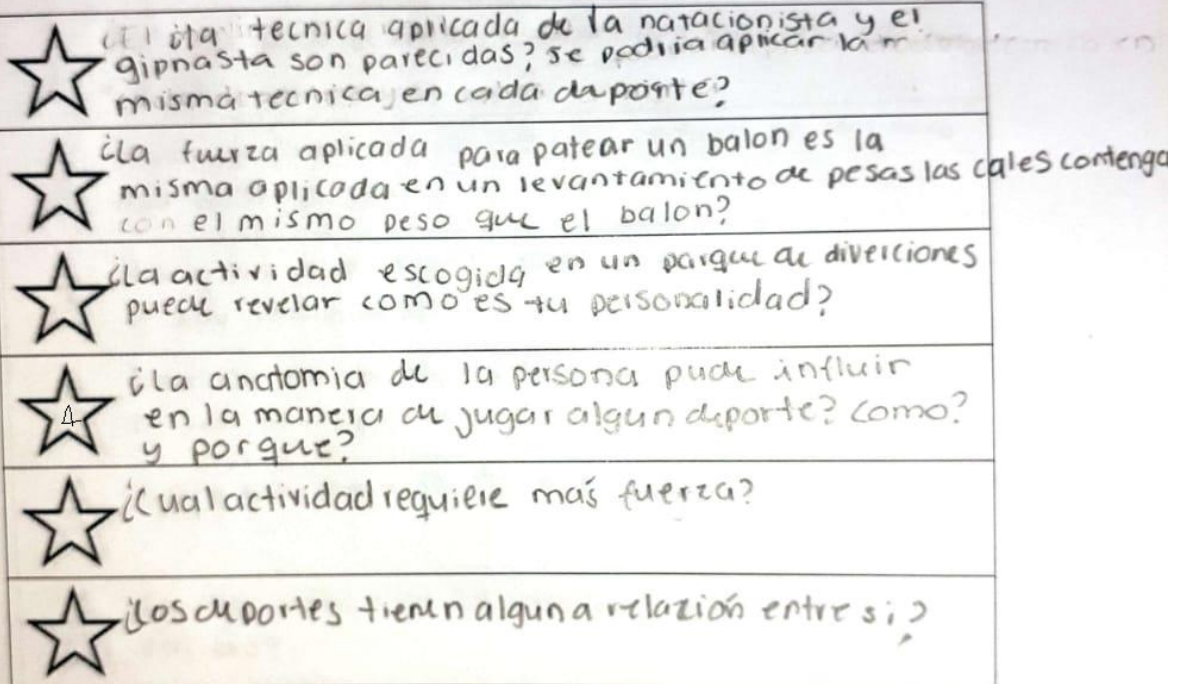 ¿la tecnica aplicada de la natacionista y el
gipnasta son parecidas? se podria aplicar la
misma tecnica en cada daporte?
¿La fuerza aplicada para patear un balon es la
misma aplicada en un levantamiento de pesas las cales contenga
con el mismo peso que el balon?
¿La actividad escogida en un parque de diverciones
puede revelar como es tu personalidad?
¿La anatomia de la persona pude influir
4
en la manera de jugar algun deporte? como?
y porque?
¿Cual actividad requiere más fuerza?
¿Los deportes tienen alguna relazión entre si?